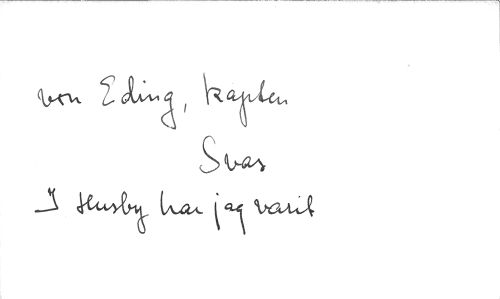 von Eding, kapten
Svar
I Husby har jag varit